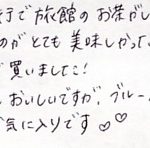 行で旅館のお茶がし
のがとても美味しかった
で買いましたこ!
おいしいですが、ブルー
気に入りです♡♡